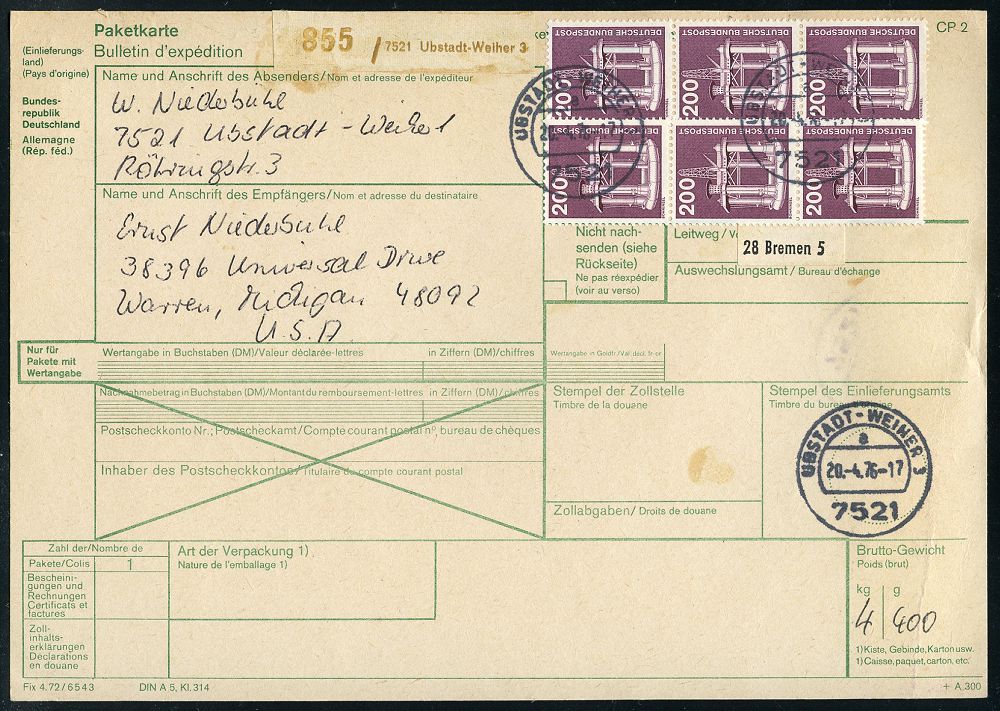 Paketkarte
Bulletin d'expédition
CP 2
(Einlieferungs-
land)
(Pays d'origine)
855 / 7521 Ubstadt-Weiher 3
Bundes-
republik
Deutschland
Allemagne
(Rép. féd.)
Name und Anschrift des Absenders/Nom et adresse de l'expéditeur
W. Niederbühl
7521 Ubstadt-Weiher 1
Röhringstr. 3
DEUTSCHE BUNDESPOST
200
DEUTSCHE BUNDESPOST
200
DEUTSCHE BUNDESPOST
200
DEUTSCHE BUNDESPOST
200
DEUTSCHE BUNDESPOST
200
DEUTSCHE BUNDESPOST
200
UBSTADT-WEIHER
7521
7521
Name und Anschrift des Empfängers/Nom et adresse du destinataire
Ernst Niederbühl
38396 Universal Drive
Warren, Michigan 48092
U.S.A.
Nicht nach-
senden (siehe
Rückseite)
Ne pas réexpédier
(voir au verso)
Leitweg/
28 Bremen 5
Auswechslungsamt/Bureau d'échange
Nur für
Pakete mit
Wertangabe
Wertangabe in Buchstaben (DM)/Valeur déclarée-lettres
in Ziffern (DM)/chiffres
Wertangabe in Goldfr./Val. décl. fr-or
Nachnahmebetrag in Buchstaben (DM)/Montant du remboursement-lettres
in Ziffern (DM)/chiffres
Postscheckkonto Nr.; Postscheckamt/Compte courant postal n°, bureau de chèques
Inhaber des Postscheckkontos/Titulaire du compte courant postal
Stempel der Zollstelle
Timbre de la douane
Zollabgaben/Droits de douane
Stempel des Einlieferungsamts
Timbre du bureau
UBSTADT-WEIHER 3
a
20.-4.76-17
7521
Zahl der/Nombre de
Pakete/Colis
1
Bescheini-
gungen und
Rechnungen
Certificats et
factures
Zoll-
inhalts-
erklärungen
Déclarations
en douane
Art der Verpackung 1)
Nature de l'emballage 1)
Brutto-Gewicht
Poids (brut)
kg g
4 400
1) Kiste, Gebinde, Karton usw.
1) Caisse, paquet, carton, etc.
Fix 4.72/6543 DIN A 5, Kl. 314
+ A 300